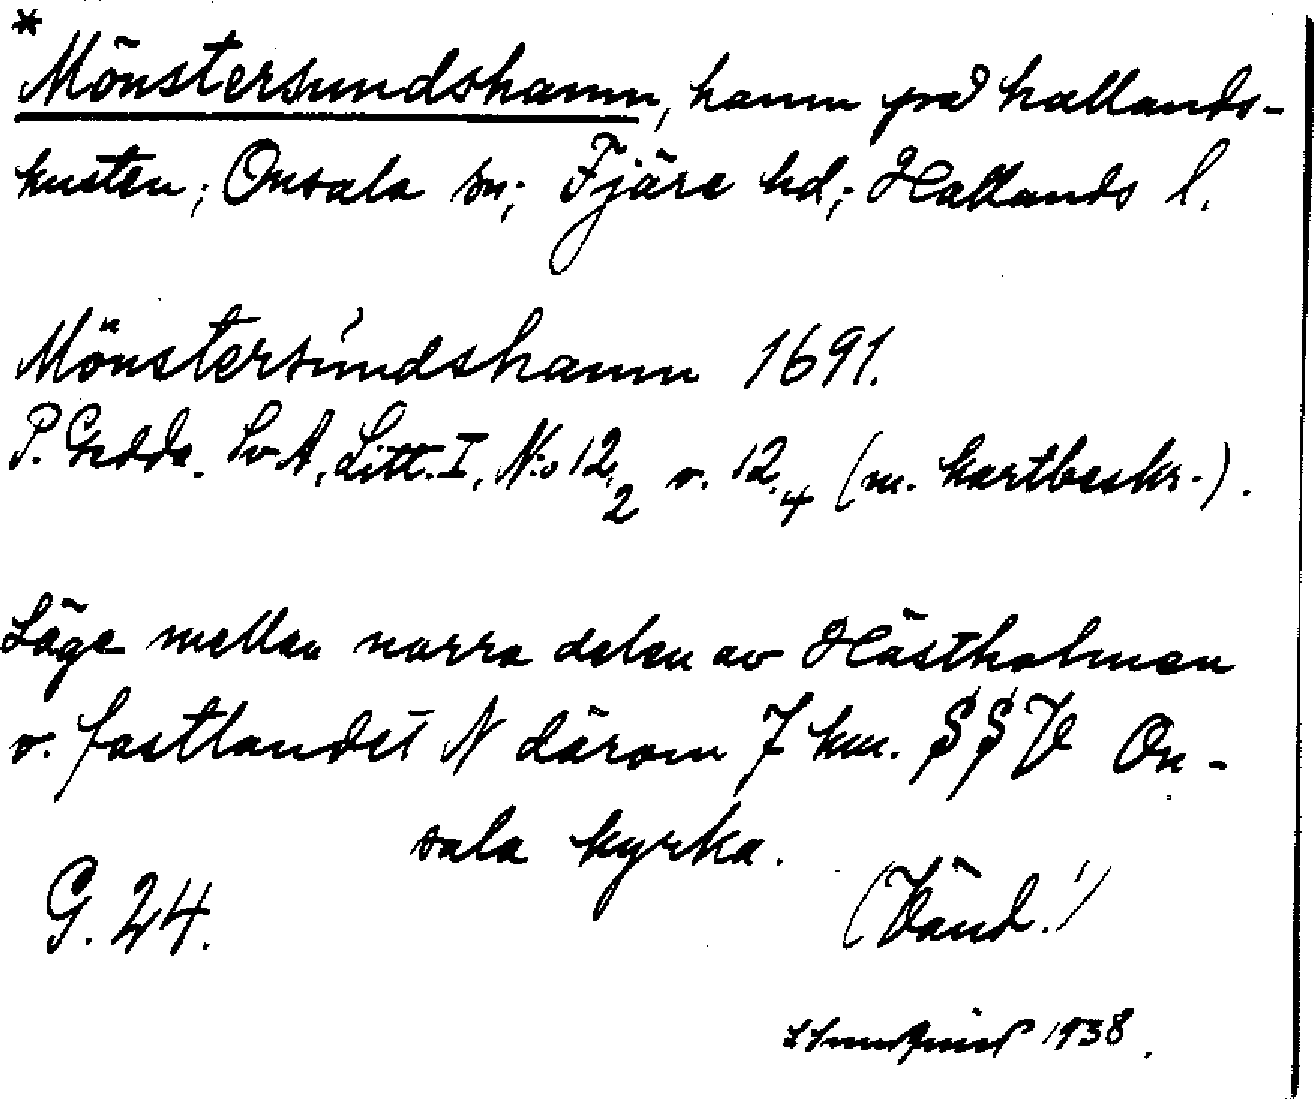 *
Mönstersundshamn, hamn på hallands-
kusten; Onsala sn; Fjäre hd; Hallands l.
Mönstersundshamn 1691.
P. Gedda. SvA, Litt. I, No 12,2 o. 12,4 (m. kartbeskr.).
Läge mellan norra delen av Hästholmen
o. fastlandet N därom 7 km. SSV On-
sala kyrka.
G. 24. (Vänd!)
1938.